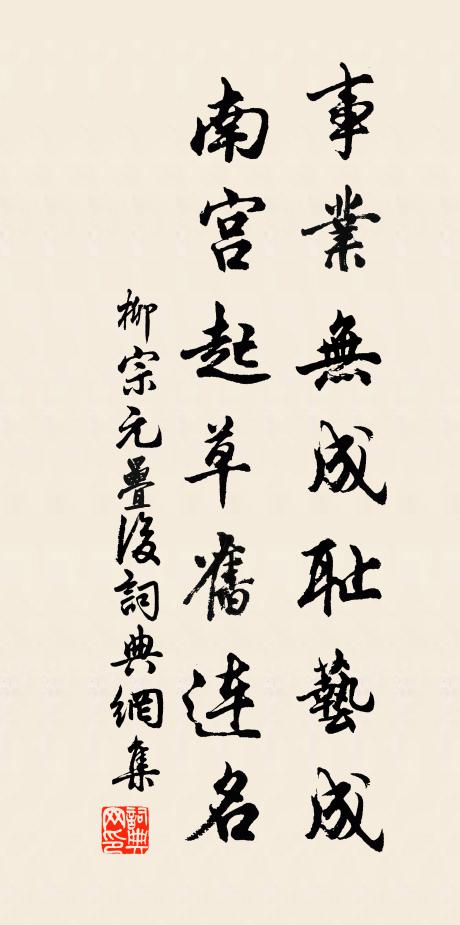 事業無成耻藝成
南宮起草舊連名
柳宗元疊後詞典網集
詞典網印